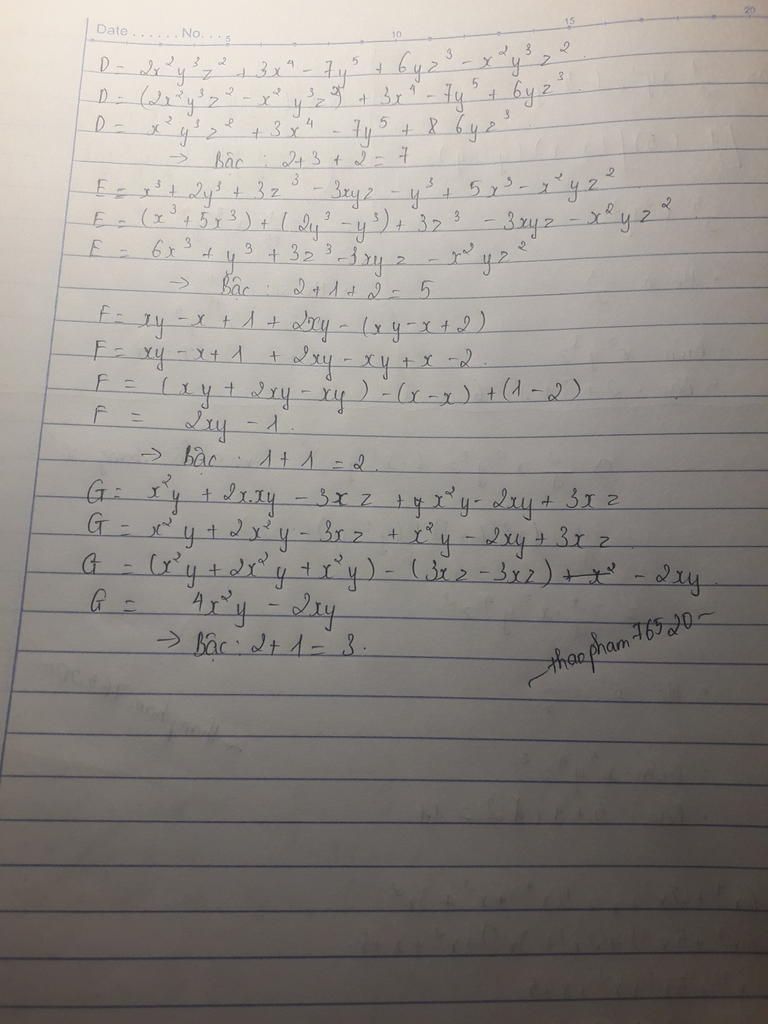 20
Date . . . . . . No. . . 5 10 15
D = 2x²y³z² + 3x⁴ - 7y⁵ + 6yz³ - x²y³z²
D = (2x²y³z² - x²y³z²) + 3x⁴ - 7y⁵ + 6yz³
D = x²y³z² + 3x⁴ - 7y⁵ + 8 6yz³
→ Bậc : 2+3+2 = 7
E = x³ + 2y³ + 3z³ - 3xyz - y³ + 5x³ - x²yz²
E = (x³ + 5x³) + (2y³ - y³) + 3z³ - 3xyz - x²yz²
E = 6x³ + y³ + 3z³ - 3xyz - x²yz²
→ Bậc : 2+1+2 = 5
F = xy - x + 1 + 2xy - (xy - x + 2)
F = xy - x + 1 + 2xy - xy + x - 2.
F = (xy + 2xy - xy) - (x - x) + (1 - 2)
F = 2xy - 1.
→ Bậc : 1+1 = 2.
G = x²y + 2x.xy - 3xz + x²y - 2xy + 3xz
G = x²y + 2x²y - 3xz + x²y - 2xy + 3xz
G = (x²y + 2x²y + x²y) - (3xz - 3xz) + x² - 2xy.
G = 4x²y - 2xy
→ Bậc : 2+1 = 3.
~thaopham76520~